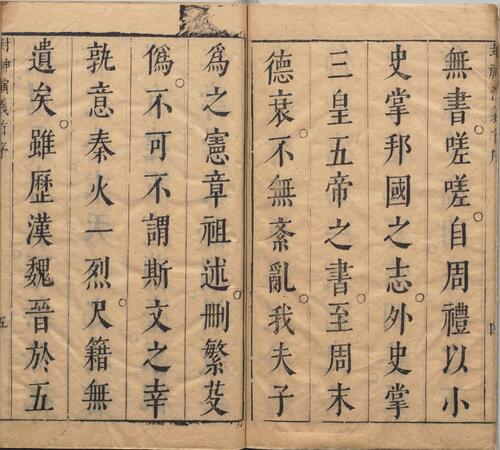 無書嗟嗟自周禮以小
史掌邦國之志外史掌
三皇五帝之書至周末
德衰不無紊亂我夫子
為之憲章祖述刪繁芟
僞不可不謂斯文之幸
孰意秦火一烈尺籍無
遺矣雖歷漢魏晉於五
封神演義首序
五